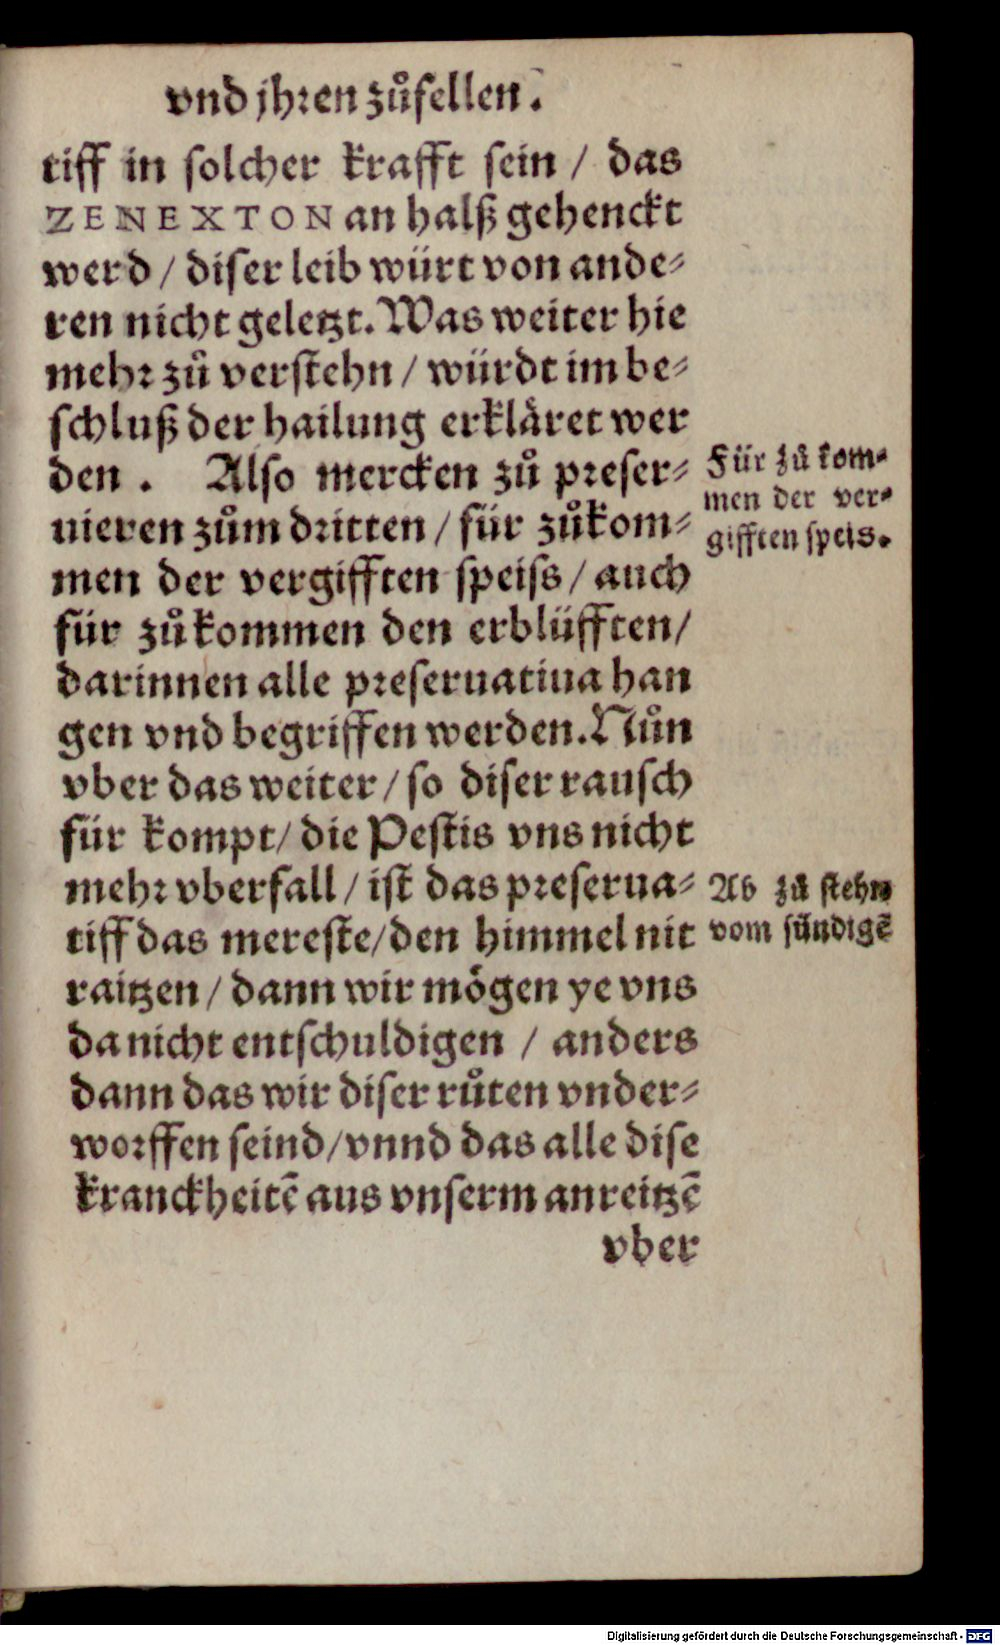 vnd jhren zůfellen.
tiff in solcher krafft sein / das
ZENEXTON an halß gehenckt
werd / diser leib würt von ande⸗
ren nicht geletzt. Was weiter hie
mehr zů verstehn / würdt im be⸗
schluß der hailung erkläret wer
den . Also mercken zů preser⸗
uieren zům dritten / für zůkom⸗
men der vergifften speiss / auch
für zůkommen den erblüfften/
darinnen alle preseruatiua han
gen vnd begriffen werden. Nůn
vber das weiter / so diser rausch
für kompt/ die Pestis vns nicht
mehr vberfall / ist das preserua⸗
tiff das mereste/den himmel nit
raitzen / dann wir mögen ye vns
da nicht entschuldigen / anders
dann das wir diser růten vnder⸗
worffen seind/vnnd das alle dise
kranckheitē aus vnserm anreitzē
vber
Für zů kom⸗
men der ver⸗
gifften speis.
Ab zů stehn
vom sündigē
Digitalisierung gefördert durch die Deutsche Forschungsgemeinschaft - DFG